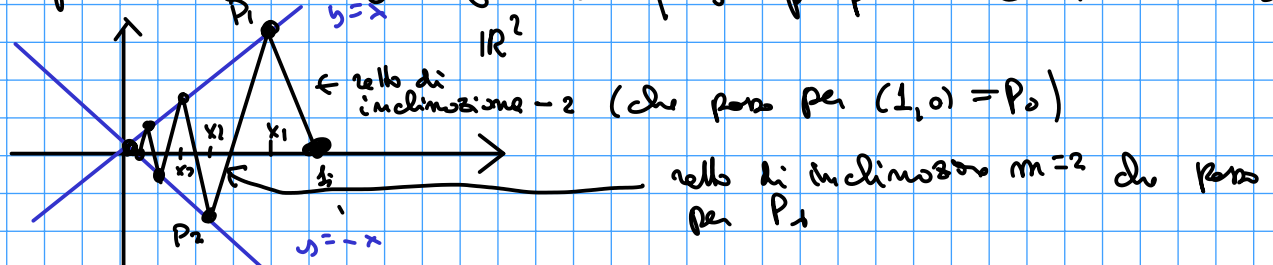 P₁
y=x
ℝ²
← retta di
inclinazione -2 (che passa per (1,0) = P₀)
x₂
x₁
x₃
1
retta di inclinazione m=2 che passa
per P₁
P₂
y=-x